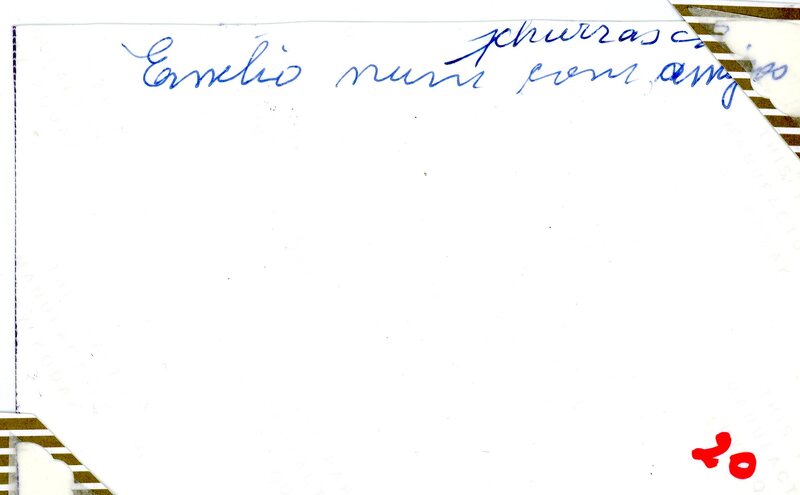 churrasco
Emelio num com amigos
20